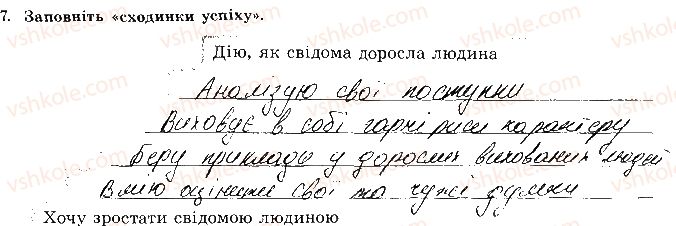 7. Заповніть «сходинки успіху».
Дію, як свідома доросла людина
Аналізую свої поступки
Виховує в собі гарні риси характеру
Беру приклади у дорослих вихованих людей
Вмію оцінити свої та чужі думки
Хочу зростати свідомою людиною